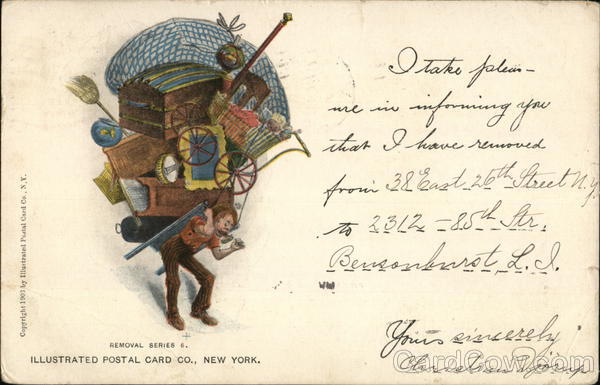 I take pleas-
ure in informing you
that I have removed
from 38 East 26th Street N.Y.
to 2312 - 85th Str.
Bensonhurst, L. I.
Yours sincerely
Copyright 1903 by Illustrated Postal Card Co., N.Y.
REMOVAL SERIES 6.
ILLUSTRATED POSTAL CARD CO., NEW YORK.
CardCow.com